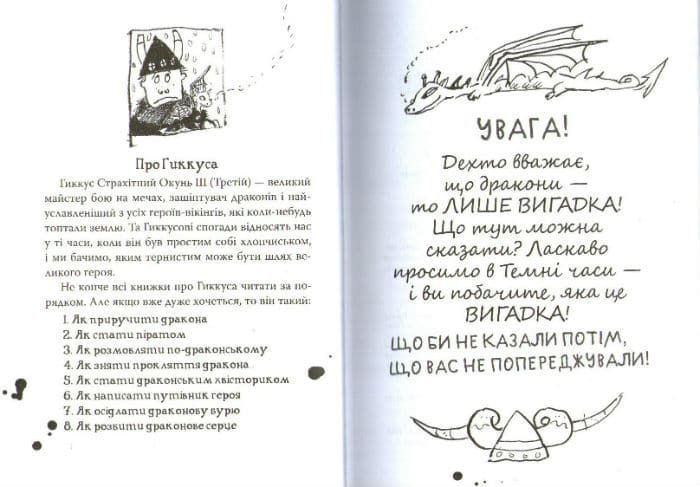 Про Гиккуса
Гиккус Страхітний Окунь III (Третій) — великий
майстер бою на мечах, зашіптувач драконів і най-
уславленіший з усіх героїв-вікінгів, які коли-небудь
топтали землю. Та Гиккусові спогади відносять нас
у ті часи, коли він був простим собі хлопчиськом,
і ми бачимо, яким тернистим може бути шлях ве-
ликого героя.
Не конче всі книжки про Гиккуса читати за по-
рядком. Але якщо вже дуже хочеться, то він такий:
1. Як приручити дракона
2. Як стати піратом
3. Як розмовляти по-драконському
4. Як зняти прокляття дракона
5. Як стати драконським хвісториком
6. Як написати путівник героя
7. Як осідлати драконову бурю
8. Як розбити драконове серце
УВАГА!
Дехто вважає,
що дракони —
то ЛИШЕ ВИГАДКА!
Що тут можна
сказати? Ласкаво
просимо в Темні часи —
і ви побачите, яка це
ВИГАДКА!
ЩО БИ НЕ КАЗАЛИ ПОТІМ,
ЩО ВАС НЕ ПОПЕРЕДЖУВАЛИ!